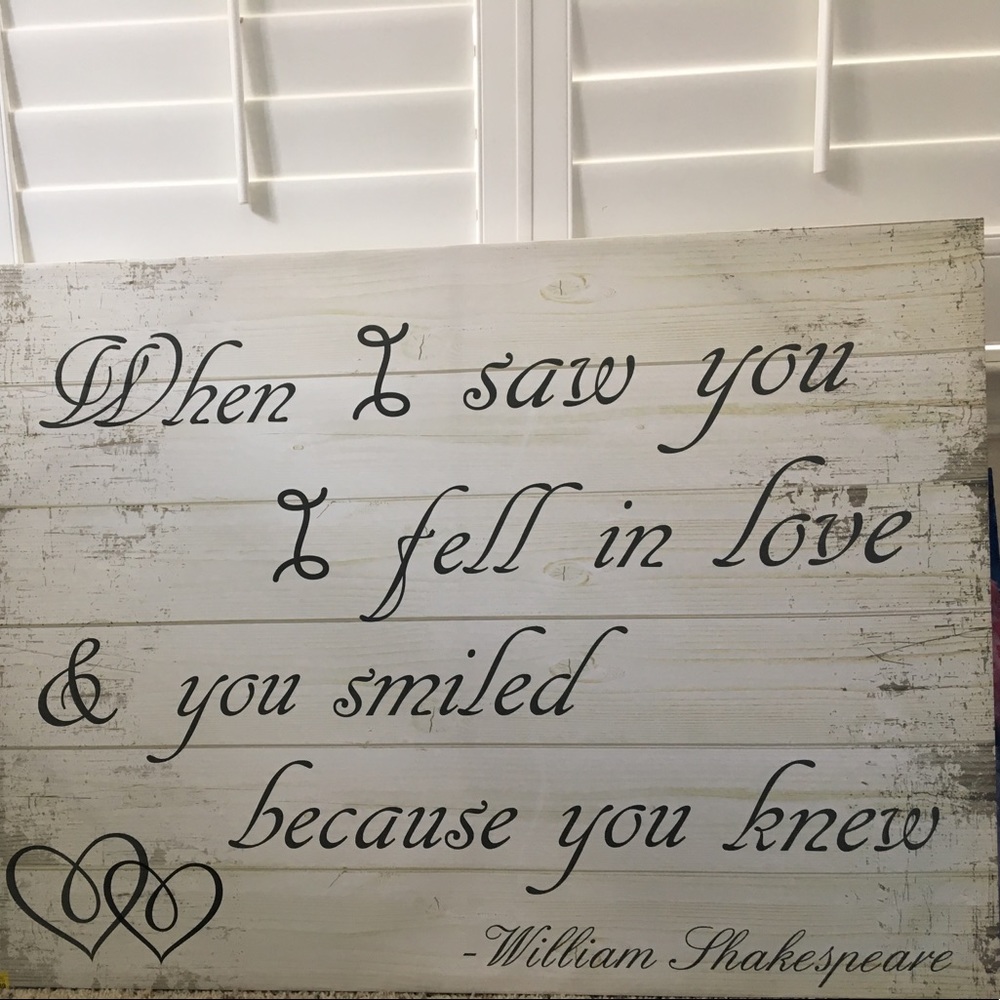 When I saw you
I fell in love
& you smiled
because you knew
-William Shakespeare